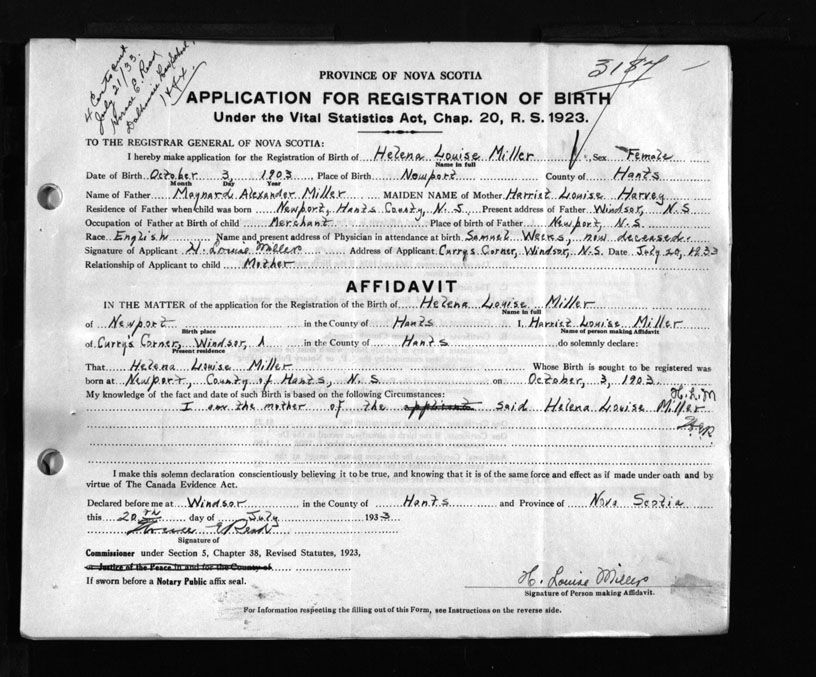 4 Cert sent
July 21/33.
Horace E. Read
Dalhousie Law School,
Hfx.
3187
PROVINCE OF NOVA SCOTIA
APPLICATION FOR REGISTRATION OF BIRTH
Under the Vital Statistics Act, Chap. 20, R. S. 1923.
TO THE REGISTRAR GENERAL OF NOVA SCOTIA:
I hereby make application for the Registration of Birth of Helena Louise Miller Sex Female
Name in full
Date of Birth October 3 1903 Place of Birth Newport County of Hants
Month Day Year
Name of Father Maynard Alexander Miller MAIDEN NAME of Mother Harriet Louise Harvey
Residence of Father when child was born Newport, Hants County, N. S. Present address of Father Windsor, N. S
Occupation of Father at Birth of child Merchant Place of birth of Father Newport, N. S.
Race English Name and present address of Physician in attendance at birth Samuel Weeks, now deceased.
Signature of Applicant H. Louise Miller Address of Applicant Currys Corner, Windsor, N.S. Date July 20, 1933
Relationship of Applicant to child Mother
AFFIDAVIT
IN THE MATTER of the application for the Registration of the Birth of Helena Louise Miller
Name in full
of Newport in the County of Hants I, Harriet Louise Miller
Birth place Name of person making Affidavit
of Curry's Corner, Windsor, in the County of Hants do solemnly declare:
Present residence
That Helena Louise Miller Whose Birth is sought to be registered was
born at Newport, County of Hants, N. S. on October, 3, 1903.
My knowledge of the fact and date of such Birth is based on the following Circumstances: H. L. M
I am the mother of the applicant said Helena Louise Miller
H.E.R.
I make this solemn declaration conscientiously believing it to be true, and knowing that it is of the same force and effect as if made under oath and by
virtue of The Canada Evidence Act.
Declared before me at Windsor in the County of Hants and Province of Nova Scotia
this 20th day of July 1933
Horace E Read
Signature of
Commissioner under Section 5, Chapter 38, Revised Statutes, 1923,
a Justice of the Peace in and for the County of
If sworn before a Notary Public affix seal.
H. Louise Miller
Signature of Person making Affidavit.
For Information respecting the filling out of this Form, see Instructions on the reverse side.